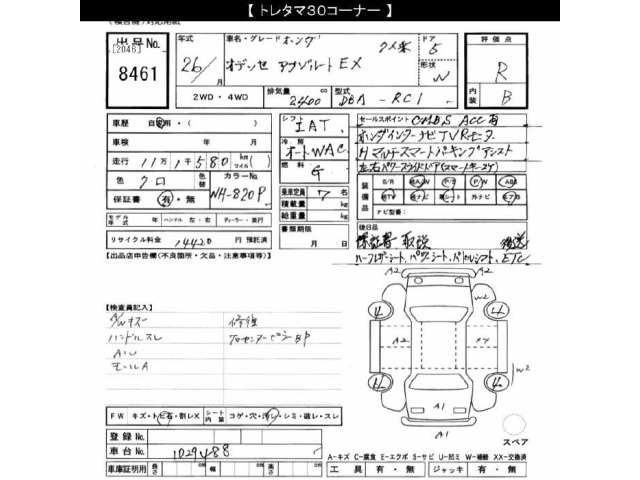 【 トレタマ30コーナー 】
(検査機)対応用紙
出品号No.
[2046]
8461
年式
26/
月
車名・グレード ホンダ
クメ米
オデッセ アブソルート EX
ドア
5
形状
W
2WD・4WD
排気量
2400
cc
型式
DBA - RC1
評価点
R
内装
B
車歴
自家用・( )
車検
年 月
走行
11万1千580
km
マイル
色
クロ
色替
カラーNo.
NH-820P
保証書
有・無
モデル年式
年
ハンドル
左・右
ディーラー・並行
リサイクル料金
14420
円
預託済
シフト
IAT
冷房
オートWAC
燃料
G
乗車定員
7
名
積載量
kg
総重量
kg
書類期限
月 日
セールスポイント
CMBS ACC 有
ホンダインターナビTVRモニタ
マルチスマートパーキングアシスト
左右パワースライドドア(スマートキー2ケ)
装備品
S/R
純A/W
P/S
P/W
ABS
純TV
純ナビ
革シート
外ナビ
エアB
ナビ型番:
後日品
保証書 取説
後送
ハーフレザーシート、パワーシート、パドルシフト、ETC
【出品店申告欄(不良箇所・欠品・注意事項等)】
【検査員記入】
A/Wキズ
ハンドルスレ
モールA
修復
FW
キズ・トビ石・割レX
シート内装
コゲ・穴・汚レ・シミ・破レ・スレ
登録No.
車台No.
1029488
車庫証明用
長さ
cm
幅
cm
高さ
cm
A2
A2
W2
4
4
A2
XX
4
4
W2
A1
A1
スペア
A-キズ C-腐食 E-エクボ S-サビ U-凹ミ W-補修 XX-交換済
工具
有・無
ジャッキ
有・無